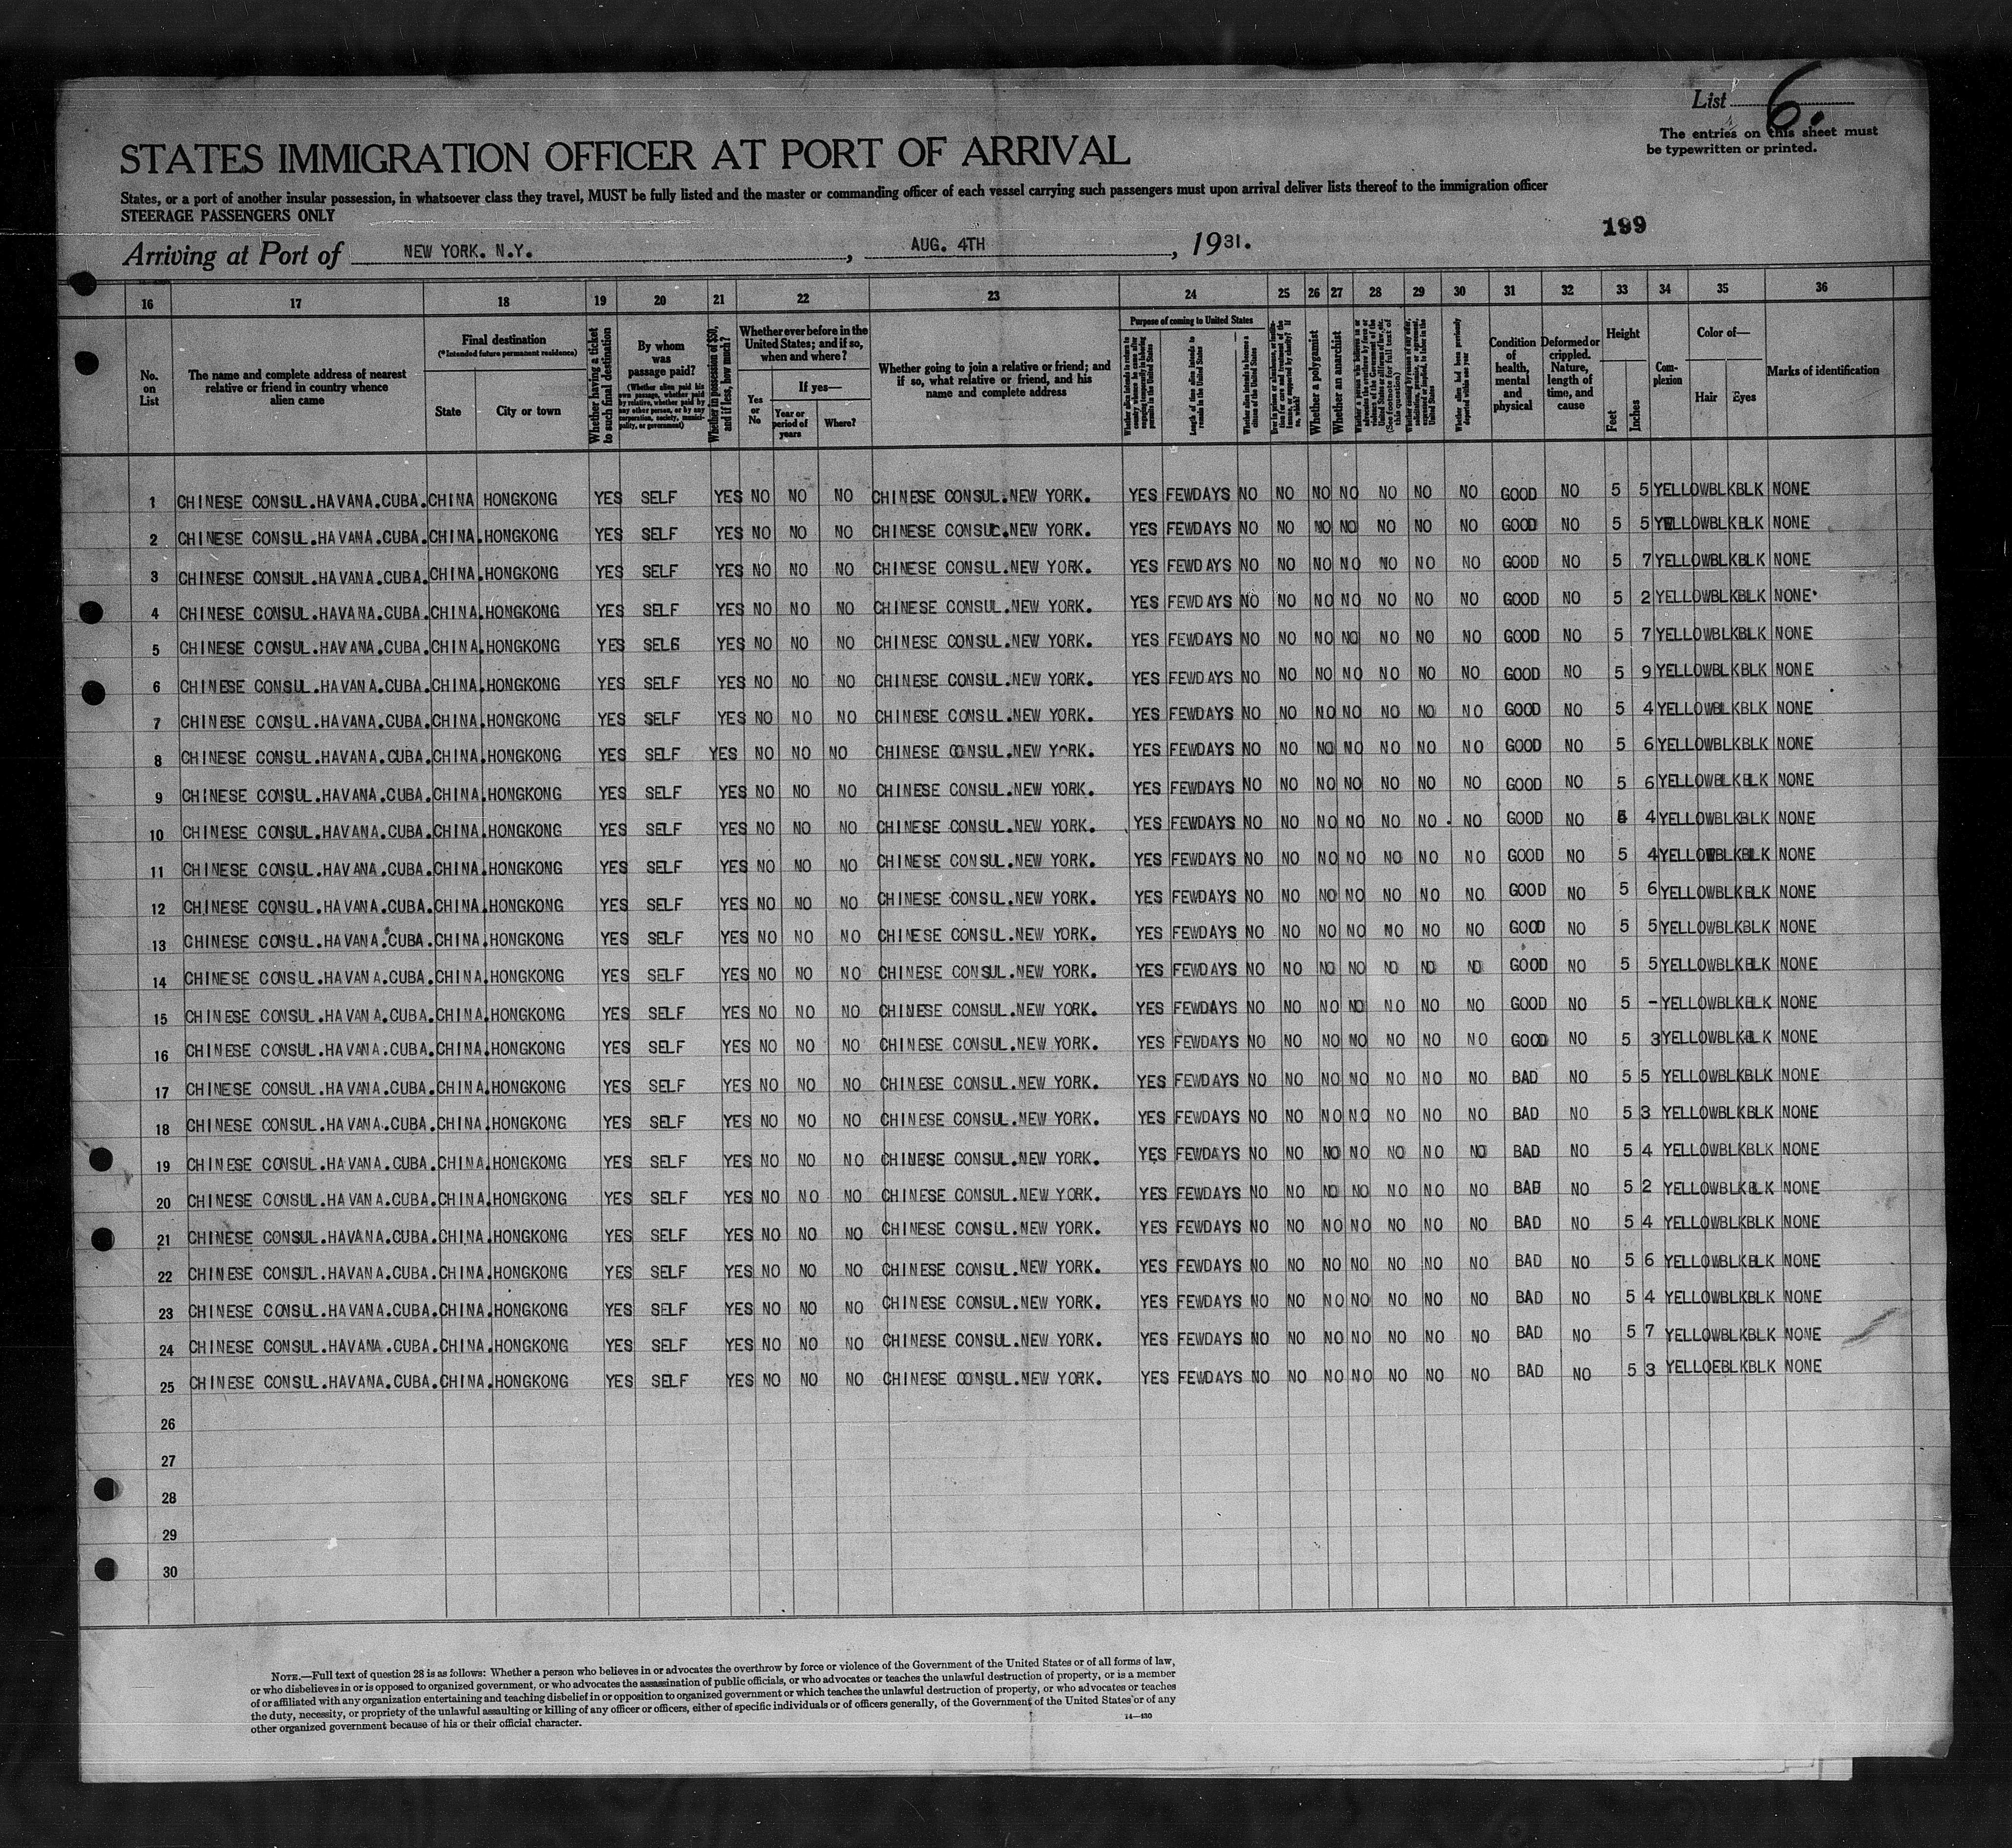 List 6.
The entries on this sheet must
be typewritten or printed.
STATES IMMIGRATION OFFICER AT PORT OF ARRIVAL
States, or a port of another insular possession, in whatsoever class they travel, MUST be fully listed and the master or commanding officer of each vessel carrying such passengers must upon arrival deliver lists thereof to the immigration officer
STEERAGE PASSENGERS ONLY
199
Arriving at Port of NEW YORK. N.Y. , AUG. 4TH , 1931.
16 17 18 19 20 21 22 23 24 25 26 27 28 29 30 31 32 33 34 35 36
No. on List
The name and complete address of nearest relative or friend in country whence alien came
Final destination
(*Intended future permanent residence)
State
City or town
Whether having a ticket to such final destination
By whom was passage paid?
(Whether alien paid his own passage, whether paid by relative, whether paid by any other person, or by any corporation, society, municipality, or government)
Whether in possession of $50, and if less, how much?
Whether ever before in the United States; and if so, when and where?
Yes or No
If yes—
Year or period of years
Where?
Whether going to join a relative or friend; and if so, what relative or friend, and his name and complete address
Purpose of coming to United States
Length of time alien intends to remain in the United States
Whether alien intends to become a citizen of the United States
Whether a polygamist
Whether an anarchist
Whether alien had been previously deported within one year
Condition of health, mental and physical
Deformed or crippled. Nature, length of time, and cause
Height
Feet
Inches
Complexion
Color of—
Hair
Eyes
Marks of identification
1 CHINESE CONSUL.HAVANA.CUBA. CHINA HONGKONG YES SELF YES NO NO NO CHINESE CONSUL.NEW YORK. YES FEWDAYS NO NO NO NO NO NO NO GOOD NO 5 5 YELLOW BLK BLK NONE
2 CHINESE CONSUL.HAVANA.CUBA. CHINA. HONGKONG YES SELF YES NO NO NO CHINESE CONSUL.NEW YORK. YES FEWDAYS NO NO NO NO NO NO NO GOOD NO 5 5 YELLOW BLK BLK NONE
3 CHINESE CONSUL.HAVANA.CUBA. CHINA. HONGKONG YES SELF YES NO NO NO CHINESE CONSUL.NEW YORK. YES FEWDAYS NO NO NO NO NO NO NO GOOD NO 5 7 YELLOW BLK BLK NONE
4 CHINESE CONSUL.HAVANA.CUBA. CHINA. HONGKONG YES SELF YES NO NO NO CHINESE CONSUL.NEW YORK. YES FEWDAYS NO NO NO NO NO NO NO GOOD NO 5 2 YELLOW BLK BLK NONE
5 CHINESE CONSUL.HAVANA.CUBA. CHINA. HONGKONG YES SELG YES NO NO NO CHINESE CONSUL.NEW YORK. YES FEWDAYS NO NO NO NO NO NO NO GOOD NO 5 7 YELLOW BLK BLK NONE
6 CHINESE CONSUL.HAVANA.CUBA. CHINA. HONGKONG YES SELF YES NO NO NO CHINESE CONSUL.NEW YORK. YES FEWDAYS NO NO NO NO NO NO NO GOOD NO 5 9 YELLOW BLK BLK NONE
7 CHINESE CONSUL.HAVANA.CUBA. CHINA. HONGKONG YES SELF YES NO NO NO CHINESE CONSUL.NEW YORK. YES FEWDAYS NO NO NO NO NO NO NO GOOD NO 5 4 YELLOW BLK BLK NONE
8 CHINESE CONSUL.HAVANA.CUBA. CHINA. HONGKONG YES SELF YES NO NO NO CHINESE CONSUL.NEW YORK. YES FEWDAYS NO NO NO NO NO NO NO GOOD NO 5 6 YELLOW BLK BLK NONE
9 CHINESE CONSUL.HAVANA.CUBA. CHINA. HONGKONG YES SELF YES NO NO NO CHINESE CONSUL.NEW YORK. YES FEWDAYS NO NO NO NO NO NO NO GOOD NO 5 6 YELLOW BLK BLK NONE
10 CHINESE CONSUL.HAVANA.CUBA. CHINA. HONGKONG YES SELF YES NO NO NO CHINESE CONSUL.NEW YORK. YES FEWDAYS NO NO NO NO NO NO NO GOOD NO 5 4 YELLOW BLK BLK NONE
11 CHINESE CONSUL.HAVANA.CUBA. CHINA. HONGKONG YES SELF YES NO NO NO CHINESE CONSUL.NEW YORK. YES FEWDAYS NO NO NO NO NO NO NO GOOD NO 5 4 YELLOW BLK BLK NONE
12 CHINESE CONSUL.HAVANA.CUBA. CHINA. HONGKONG YES SELF YES NO NO NO CHINESE CONSUL.NEW YORK. YES FEWDAYS NO NO NO NO NO NO NO GOOD NO 5 6 YELLOW BLK BLK NONE
13 CHINESE CONSUL.HAVANA.CUBA. CHINA. HONGKONG YES SELF YES NO NO NO CHINESE CONSUL.NEW YORK. YES FEWDAYS NO NO NO NO NO NO NO GOOD NO 5 5 YELLOW BLK BLK NONE
14 CHINESE CONSUL.HAVANA.CUBA. CHINA. HONGKONG YES SELF YES NO NO NO CHINESE CONSUL.NEW YORK. YES FEWDAYS NO NO NO NO NO NO NO GOOD NO 5 5 YELLOW BLK BLK NONE
15 CHINESE CONSUL.HAVANA.CUBA. CHINA. HONGKONG YES SELF YES NO NO NO CHINESE CONSUL.NEW YORK. YES FEWDAYS NO NO NO NO NO NO NO GOOD NO 5 - YELLOW BLK BLK NONE
16 CHINESE CONSUL.HAVANA.CUBA. CHINA. HONGKONG YES SELF YES NO NO NO CHINESE CONSUL.NEW YORK. YES FEWDAYS NO NO NO NO NO NO NO GOOD NO 5 3 YELLOW BLK BLK NONE
17 CHINESE CONSUL.HAVANA.CUBA. CHINA. HONGKONG YES SELF YES NO NO NO CHINESE CONSUL.NEW YORK. YES FEWDAYS NO NO NO NO NO NO NO BAD NO 5 5 YELLOW BLK BLK NONE
18 CHINESE CONSUL.HAVANA.CUBA. CHINA. HONGKONG YES SELF YES NO NO NO CHINESE CONSUL.NEW YORK. YES FEWDAYS NO NO NO NO NO NO NO BAD NO 5 3 YELLOW BLK BLK NONE
19 CHINESE CONSUL.HAVANA.CUBA. CHINA. HONGKONG YES SELF YES NO NO NO CHINESE CONSUL.NEW YORK. YES FEWDAYS NO NO NO NO NO NO NO BAD NO 5 4 YELLOW BLK BLK NONE
20 CHINESE CONSUL.HAVANA.CUBA. CHINA. HONGKONG YES SELF YES NO NO NO CHINESE CONSUL.NEW YORK. YES FEWDAYS NO NO NO NO NO NO NO BAD NO 5 2 YELLOW BLK BLK NONE
21 CHINESE CONSUL.HAVANA.CUBA. CHINA. HONGKONG YES SELF YES NO NO NO CHINESE CONSUL.NEW YORK. YES FEWDAYS NO NO NO NO NO NO NO BAD NO 5 4 YELLOW BLK BLK NONE
22 CHINESE CONSUL.HAVANA.CUBA. CHINA. HONGKONG YES SELF YES NO NO NO CHINESE CONSUL.NEW YORK. YES FEWDAYS NO NO NO NO NO NO NO BAD NO 5 6 YELLOW BLK BLK NONE
23 CHINESE CONSUL.HAVANA.CUBA. CHINA. HONGKONG YES SELF YES NO NO NO CHINESE CONSUL.NEW YORK. YES FEWDAYS NO NO NO NO NO NO NO BAD NO 5 4 YELLOW BLK BLK NONE
24 CHINESE CONSUL.HAVANA.CUBA. CHINA. HONGKONG YES SELF YES NO NO NO CHINESE CONSUL.NEW YORK. YES FEWDAYS NO NO NO NO NO NO NO BAD NO 5 7 YELLOW BLK BLK NONE
25 CHINESE CONSUL.HAVANA.CUBA. CHINA. HONGKONG YES SELF YES NO NO NO CHINESE CONSUL.NEW YORK. YES FEWDAYS NO NO NO NO NO NO NO BAD NO 5 3 YELLOE BLK BLK NONE
26
27
28
29
30
NOTE.—Full text of question 28 is as follows: Whether a person who believes in or advocates the overthrow by force or violence of the Government of the United States or of all forms of law,
or who disbelieves in or is opposed to organized government, or who advocates the assassination of public officials, or who advocates or teaches the unlawful destruction of property, or is a member
of or affiliated with any organization entertaining and teaching disbelief in or opposition to organized government or which teaches the unlawful destruction of property, or who advocates or teaches
the duty, necessity, or propriety of the unlawful assaulting or killing of any officer or officers, either of specific individuals or of officers generally, of the Government of the United States or of any
other organized government because of his or their official character.
14—430